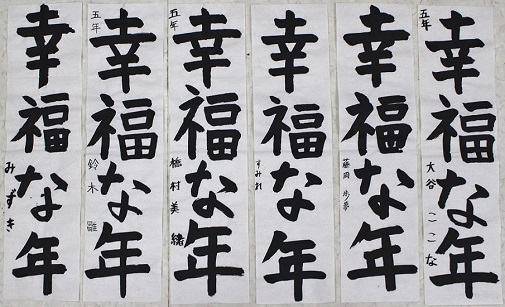 五年
幸福な年
大谷 ここな
幸福な年
藤岡 歩夢
幸福な年
すみれ
五年
幸福な年
橋村美緒
五年
幸福な年
鈴木
幸福な年
みずき